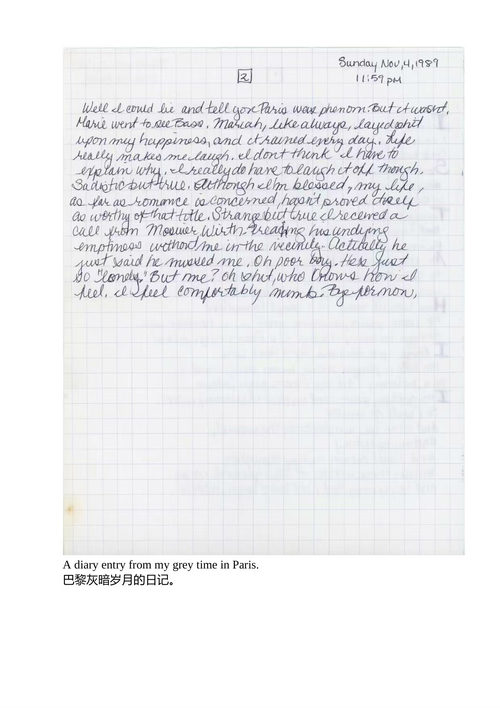 Sunday Nov, 4, 1989
11:59 PM
2
Well I could lie and tell you Paris was phenom. But it wasn't.
Marie went to see Bass. Mariah, like always, layed shit
upon my happiness, and it rained every day. Life
really makes me laugh. I don't think I have to
explain why. I really do have to laugh it off though.
Sadistic but true. Although I'm blessed, my life,
as far as romance is concerned, hasn't proved itself
as worthy of that title. Strange but true I received a
call from Wirth. his undying
emptiness without me in the vicinity. Actually he
just said he missed me. Oh poor boy. He's just
so "lonely." But me? Oh shit, who knows how I
feel. I feel comfortably numb.
A diary entry from my grey time in Paris.
巴黎灰暗岁月的日记。